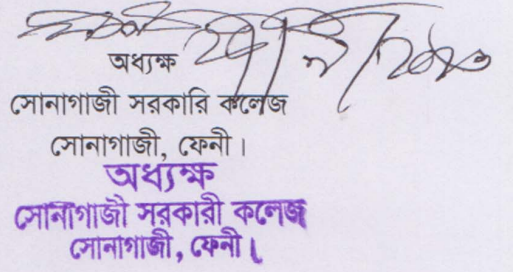 অধ্যক্ষ
সোনাগাজী সরকারি কলেজ
সোনাগাজী, ফেনী।
অধ্যক্ষ
সোনাগাজী সরকারী কলেজ
সোনাগাজী, ফেনী।